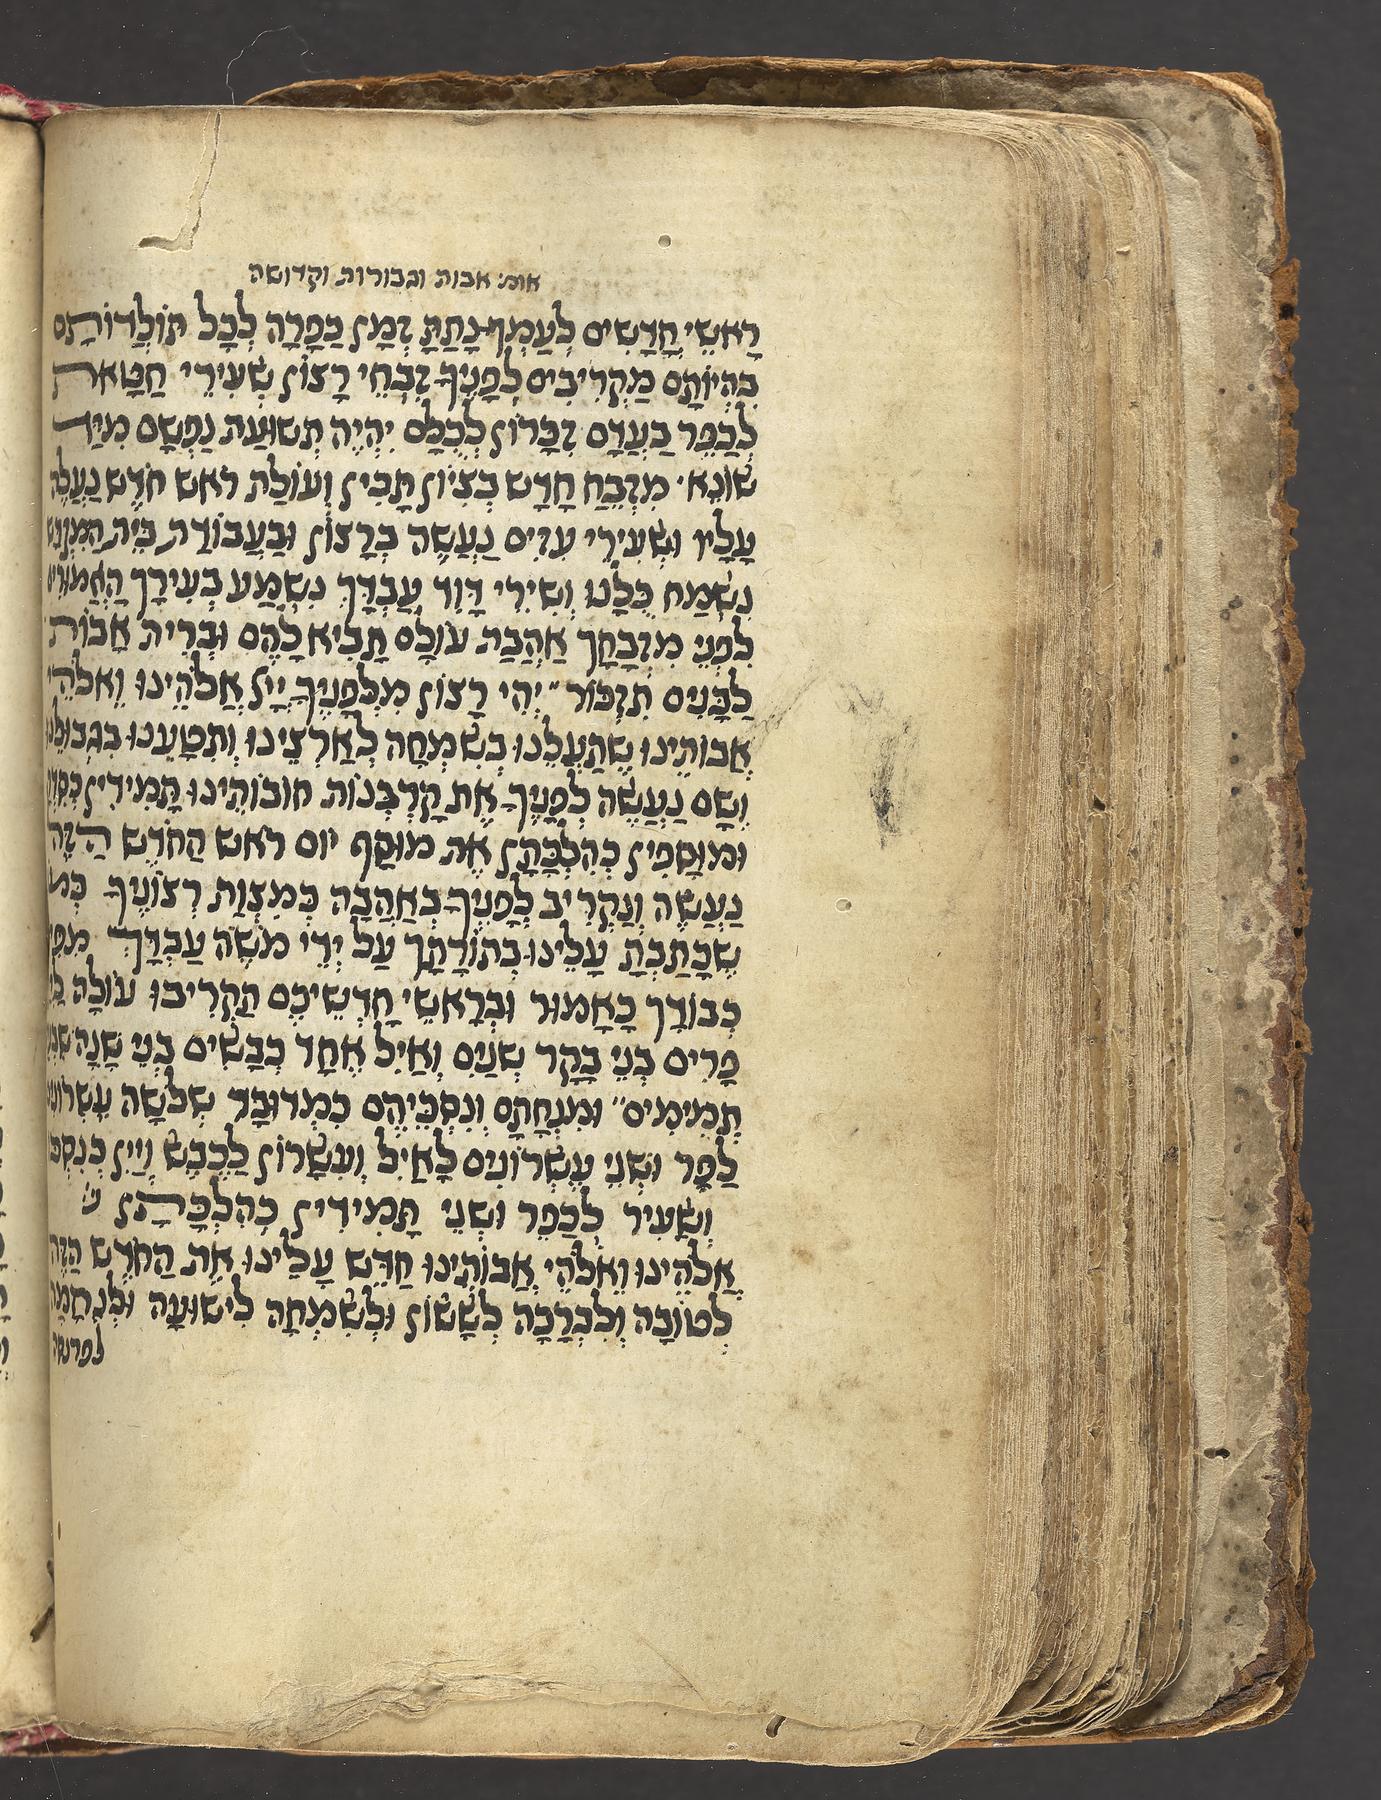 אומ׳ אבות וגבורות וקדושה
רָאשֵׁי חֳדָשִׁים לְעַמְּךָ נָתַתָּ זְמַן כַּפָּרָה לְכָל תּוֹלְדוֹתָם
בִּהְיוֹתָם מַקְרִיבִים לְפָנֶיךָ זִבְחֵי רָצוֹן שְׂעִירֵי חַטָּאת
לְכַפֵּר בַּעֲדָם זִכָּרוֹן לְכֻלָּם יִהְיֶה תְשׁוּעַת נַפְשָׁם מִיַּד
שׂוֹנֵא׳ מִזְבֵּחַ חָדָשׁ בְּצִיּוֹן תָּכִין וְעוֹלַת רֹאשׁ חֹדֶשׁ נַעֲלֶה
עָלָיו וּשְׂעִירֵי עִזִּים נַעֲשֶׂה בְרָצוֹן וּבַעֲבוֹדַת בֵּית הַמִּקְדָּשׁ
נִשְׂמַח כֻּלָּנוּ וְשִׁירֵי דָוִד עַבְדָּךְ נִשְׁמַע בְּעִירָךְ הָאֲמוּרִים
לִפְנֵי מִזְבָּחָךְ אַהֲבַת עוֹלָם תָּבִיא לָהֶם וּבְרִית אָבוֹת
לַבָּנִים תִּזְכּוֹר״ יְהִי רָצוֹן מִלְּפָנֶיךָ יְיָ אֱלֹהֵינוּ וֵאלֹהֵי
אֲבוֹתֵינוּ שֶׁתַּעֲלֵנוּ בְשִׂמְחָה לְאַרְצֵינוּ וְתִטָּעֵנוּ בִּגְבוּלֵנוּ
וְשָׁם נַעֲשֶׂה לְפָנֶיךָ אֶת קָרְבְּנוֹת חוֹבוֹתֵינוּ תְּמִידִין כְּסִדְרָן
וּמוּסָפִין כְּהִלְכָּתָן אֶת מוּסַף יוֹם רֹאשׁ הַחֹדֶשׁ הַזֶּה
נַעֲשֶׂה וְנַקְרִיב לְפָנֶיךָ בְּאַהֲבָה כְּמִצְוַת רְצוֹנֶיךָ כְּמוֹ
שֶׁכָּתַבְתָּ עָלֵינוּ בְּתוֹרָתָךְ עַל יְדֵי מֹשֶׁה עַבְדָּךְ מִפִּי
כְבוֹדָךְ כָּאָמוּר וּבְרָאשֵׁי חָדְשֵׁיכֶם תַּקְרִיבוּ עוֹלָה לַיְיָ
פָּרִים בְּנֵי בָקָר שְׁנַיִם וְאַיִל אֶחָד כְּבָשִׂים בְּנֵי שָׁנָה שִׁבְעָה
תְּמִימִים״ וּמִנְחָתָם וְנִסְכֵּיהֶם כִּמְדוּבָּר שְׁלֹשָׁה עֶשְׂרוֹנִים
לַפָּר וּשְׁנֵי עֶשְׂרוֹנִים לָאַיִל וְעִשָּׂרוֹן לַכֶּבֶשׂ וְיַיִן כְּנִסְכּוֹ
וְשָׂעִיר לְכַפֵּר וּשְׁנֵי תְּמִידִין כְּהִלְכָּתָן
אֱלֹהֵינוּ וֵאלֹהֵי אֲבוֹתֵינוּ חַדֵּשׁ עָלֵינוּ אֶת הַחֹדֶשׁ הַזֶּה
לְטוֹבָה וְלִבְרָכָה לְשָׂשׂוֹן וּלְשִׂמְחָה לִישׁוּעָה וּלְנֶחָמָה
לפרנסה